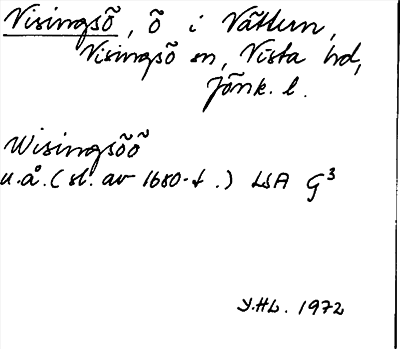 Visingsö, ö i Vättern,
Visingsö sn, Vista hd,
Jönk. l.
Wisingsöö
u.å. (sl. av 1680-t.) LSA G³
Y.HL. 1972